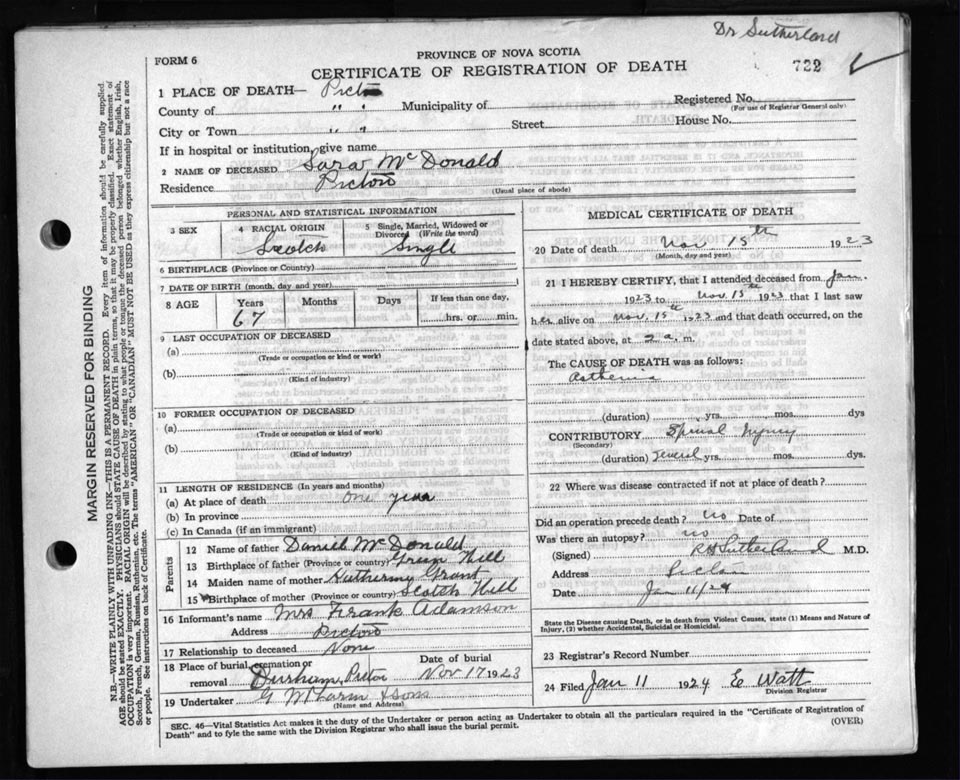 Dr Sutherland
PROVINCE OF NOVA SCOTIA
FORM 6
CERTIFICATE OF REGISTRATION OF DEATH
722
1 PLACE OF DEATH— Pictou
County of " " Municipality of
Registered No.
(For use of Registrar General only)
City or Town " " Street House No.
If in hospital or institution, give name
2 NAME OF DECEASED Sara McDonald
Residence Pictou
(Usual place of abode)
PERSONAL AND STATISTICAL INFORMATION
3 SEX
4 RACIAL ORIGIN
Scotch
5 Single, Married, Widowed or Divorced (Write the word)
Single
6 BIRTHPLACE (Province or Country)
7 DATE OF BIRTH (month, day and year)
8 AGE Years Months Days If less than one day,
67 hrs. or min.
9 LAST OCCUPATION OF DECEASED
(a)
(Trade or occupation or kind or work)
(b)
(Kind of industry)
10 FORMER OCCUPATION OF DECEASED
(a)
(Trade or occupation or kind of work)
(b)
(Kind of industry)
11 LENGTH OF RESIDENCE (In years and months)
(a) At place of death one year
(b) In province
(c) In Canada (if an immigrant)
Parents
12 Name of father Daniel McDonald
13 Birthplace of father (Province or country) Green Hill
14 Maiden name of mother Grant
15 Birthplace of mother (Province or country) Scotch Hill
16 Informant's name Mrs Frank Adamson
Address Pictou
17 Relationship to deceased None
18 Place of burial, cremation or removal Durham, Pictou
Date of burial Nov 17 1923
19 Undertaker & Sons
(Name and Address)
MEDICAL CERTIFICATE OF DEATH
20 Date of death Nov 15th 1923
(Month, day and year)
21 I HEREBY CERTIFY, that I attended deceased from Jan.
1923 to Nov. 15th 1923 that I last saw
her alive on Nov. 15th 1923 and that death occurred, on
date stated above, at 2 a. m.
The CAUSE OF DEATH was as follows:
Asthenia
(duration) yrs. mos. dys
CONTRIBUTORY Spinal Injury
(Secondary)
(duration) several yrs. mos. dys.
22 Where was disease contracted if not at place of death?
Did an operation precede death? no Date of
Was there an autopsy? no
(Signed) R H Sutherland M.D.
Address Pictou
Date Jan 11/24
State the Disease causing Death, or in death from Violent Causes, state (1) Means and Nature of
Injury, (2) whether Accidental, Suicidal or Homicidal.
23 Registrar's Record Number
24 Filed Jan 11 1924 E Watt
Division Registrar
SEC. 46—Vital Statistics Act makes it the duty of the Undertaker or person acting as Undertaker to obtain all the particulars required in the "Certificate of Registration of
Death" and to fyle the same with the Division Registrar who shall issue the burial permit.
(OVER)
MARGIN RESERVED FOR BINDING
N.B.—WRITE PLAINLY WITH UNFADING INK—THIS IS A PERMANENT RECORD. Every item of information should be carefully supplied.
AGE should be stated EXACTLY. PHYSICIANS should STATE CAUSE OF DEATH in plain terms, so that it may be properly classified. Exact statement of
OCCUPATION is very important. RACIAL ORIGIN will be described by stating to what people or tongue the deceased person belonged whether English, Irish,
Scotch, French, German, Russian, Ruthenian, etc. The terms "AMERICAN" OR "CANADIAN" MUST NOT BE USED as they express citizenship but not a race
or people. See instructions on back of Certificate.